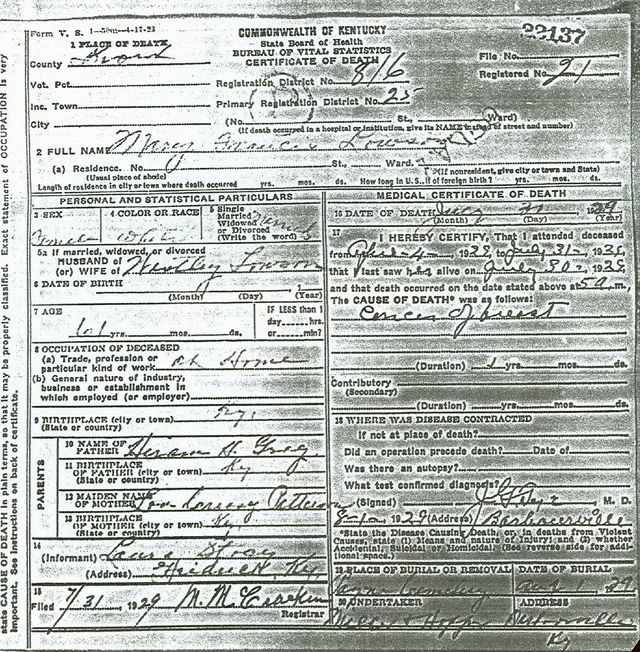 Form V. S. 1—50m—4-17-23
COMMONWEALTH OF KENTUCKY
State Board of Health
BUREAU OF VITAL STATISTICS
CERTIFICATE OF DEATH
22137
1 PLACE OF DEATH
County Knox
File No.
Vot. Pct.
Registration District No. 816
Registered No. 21
Inc. Town
Primary Registration District No. 25
City
(No. St., Ward)
(If death occurred in a hospital or institution, give its NAME instead of street and number)
2 FULL NAME Mary Francis Lawson
(a) Residence. No. St., Ward.
(Usual place of abode)
(If nonresident, give city or town and State)
Length of residence in city or town where death occurred yrs. mos. ds. How long in U.S., if of foreign birth? yrs. mos. ds.
PERSONAL AND STATISTICAL PARTICULARS
3 SEX
4 COLOR OR RACE
5 Single
Married
Widowed
or Divorced
(Write the word)
Female White
5a If married, widowed, or divorced
HUSBAND of
(or) WIFE of Lawson
6 DATE OF BIRTH
(Month) (Day) (Year)
7 AGE
IF LESS than 1
day hrs.
or min?
61 yrs. mos. ds.
8 OCCUPATION OF DECEASED
(a) Trade, profession or
particular kind of work at Home
(b) General nature of industry,
business or establishment in
which employed (or employer)
9 BIRTHPLACE (city or town) Ky.
(State or country)
PARENTS
10 NAME OF
FATHER Hiram H. Gray
11 BIRTHPLACE
OF FATHER (city or town) Ky
(State or country)
12 MAIDEN NAME
OF MOTHER Patterson
13 BIRTHPLACE
OF MOTHER (city or town) Ky
(State or country)
14
(Informant) Laura
(Address) Ky
15
Filed 7/31, 1929
Registrar
MEDICAL CERTIFICATE OF DEATH
16 DATE OF DEATH July 31 1929
(Month) (Day)
17
I HEREBY CERTIFY, That I attended deceased
from 4, 1929, to July 31, 1929
that I last saw her alive on July 30, 1929,
and that death occurred on the date stated above at 5 a. m.
The CAUSE OF DEATH* was as follows:
Cancer of breast
(Duration) 1 yrs. mos. ds.
Contributory
(Secondary)
(Duration) yrs. mos. ds.
18 WHERE WAS DISEASE CONTRACTED
If not at place of death?
Did an operation precede death? Date of
Was there an autopsy?
What test confirmed diagnosis?
(Signed) M. D.
8-1-, 1929 (Address) Barbourville
*State the Disease Causing Death, or, in deaths from Violent
Causes, state (1) Means and nature of Injury; and (2) whether
Accidental, Suicidal or Homicidal. (See reverse side for addi-
tional space.)
19 PLACE OF BURIAL OR REMOVAL
DATE OF BURIAL
20 UNDERTAKER
ADDRESS
Barbourville
Ky
state CAUSE OF DEATH in plain terms, so that it may be properly classified. Exact statement of OCCUPATION is very
important. See instructions on back of certificate.